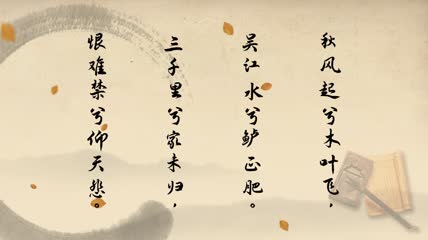 秋风起兮木叶飞，
吴江水兮鲈正肥。
三千里兮家未归，
恨难禁兮仰天悲。